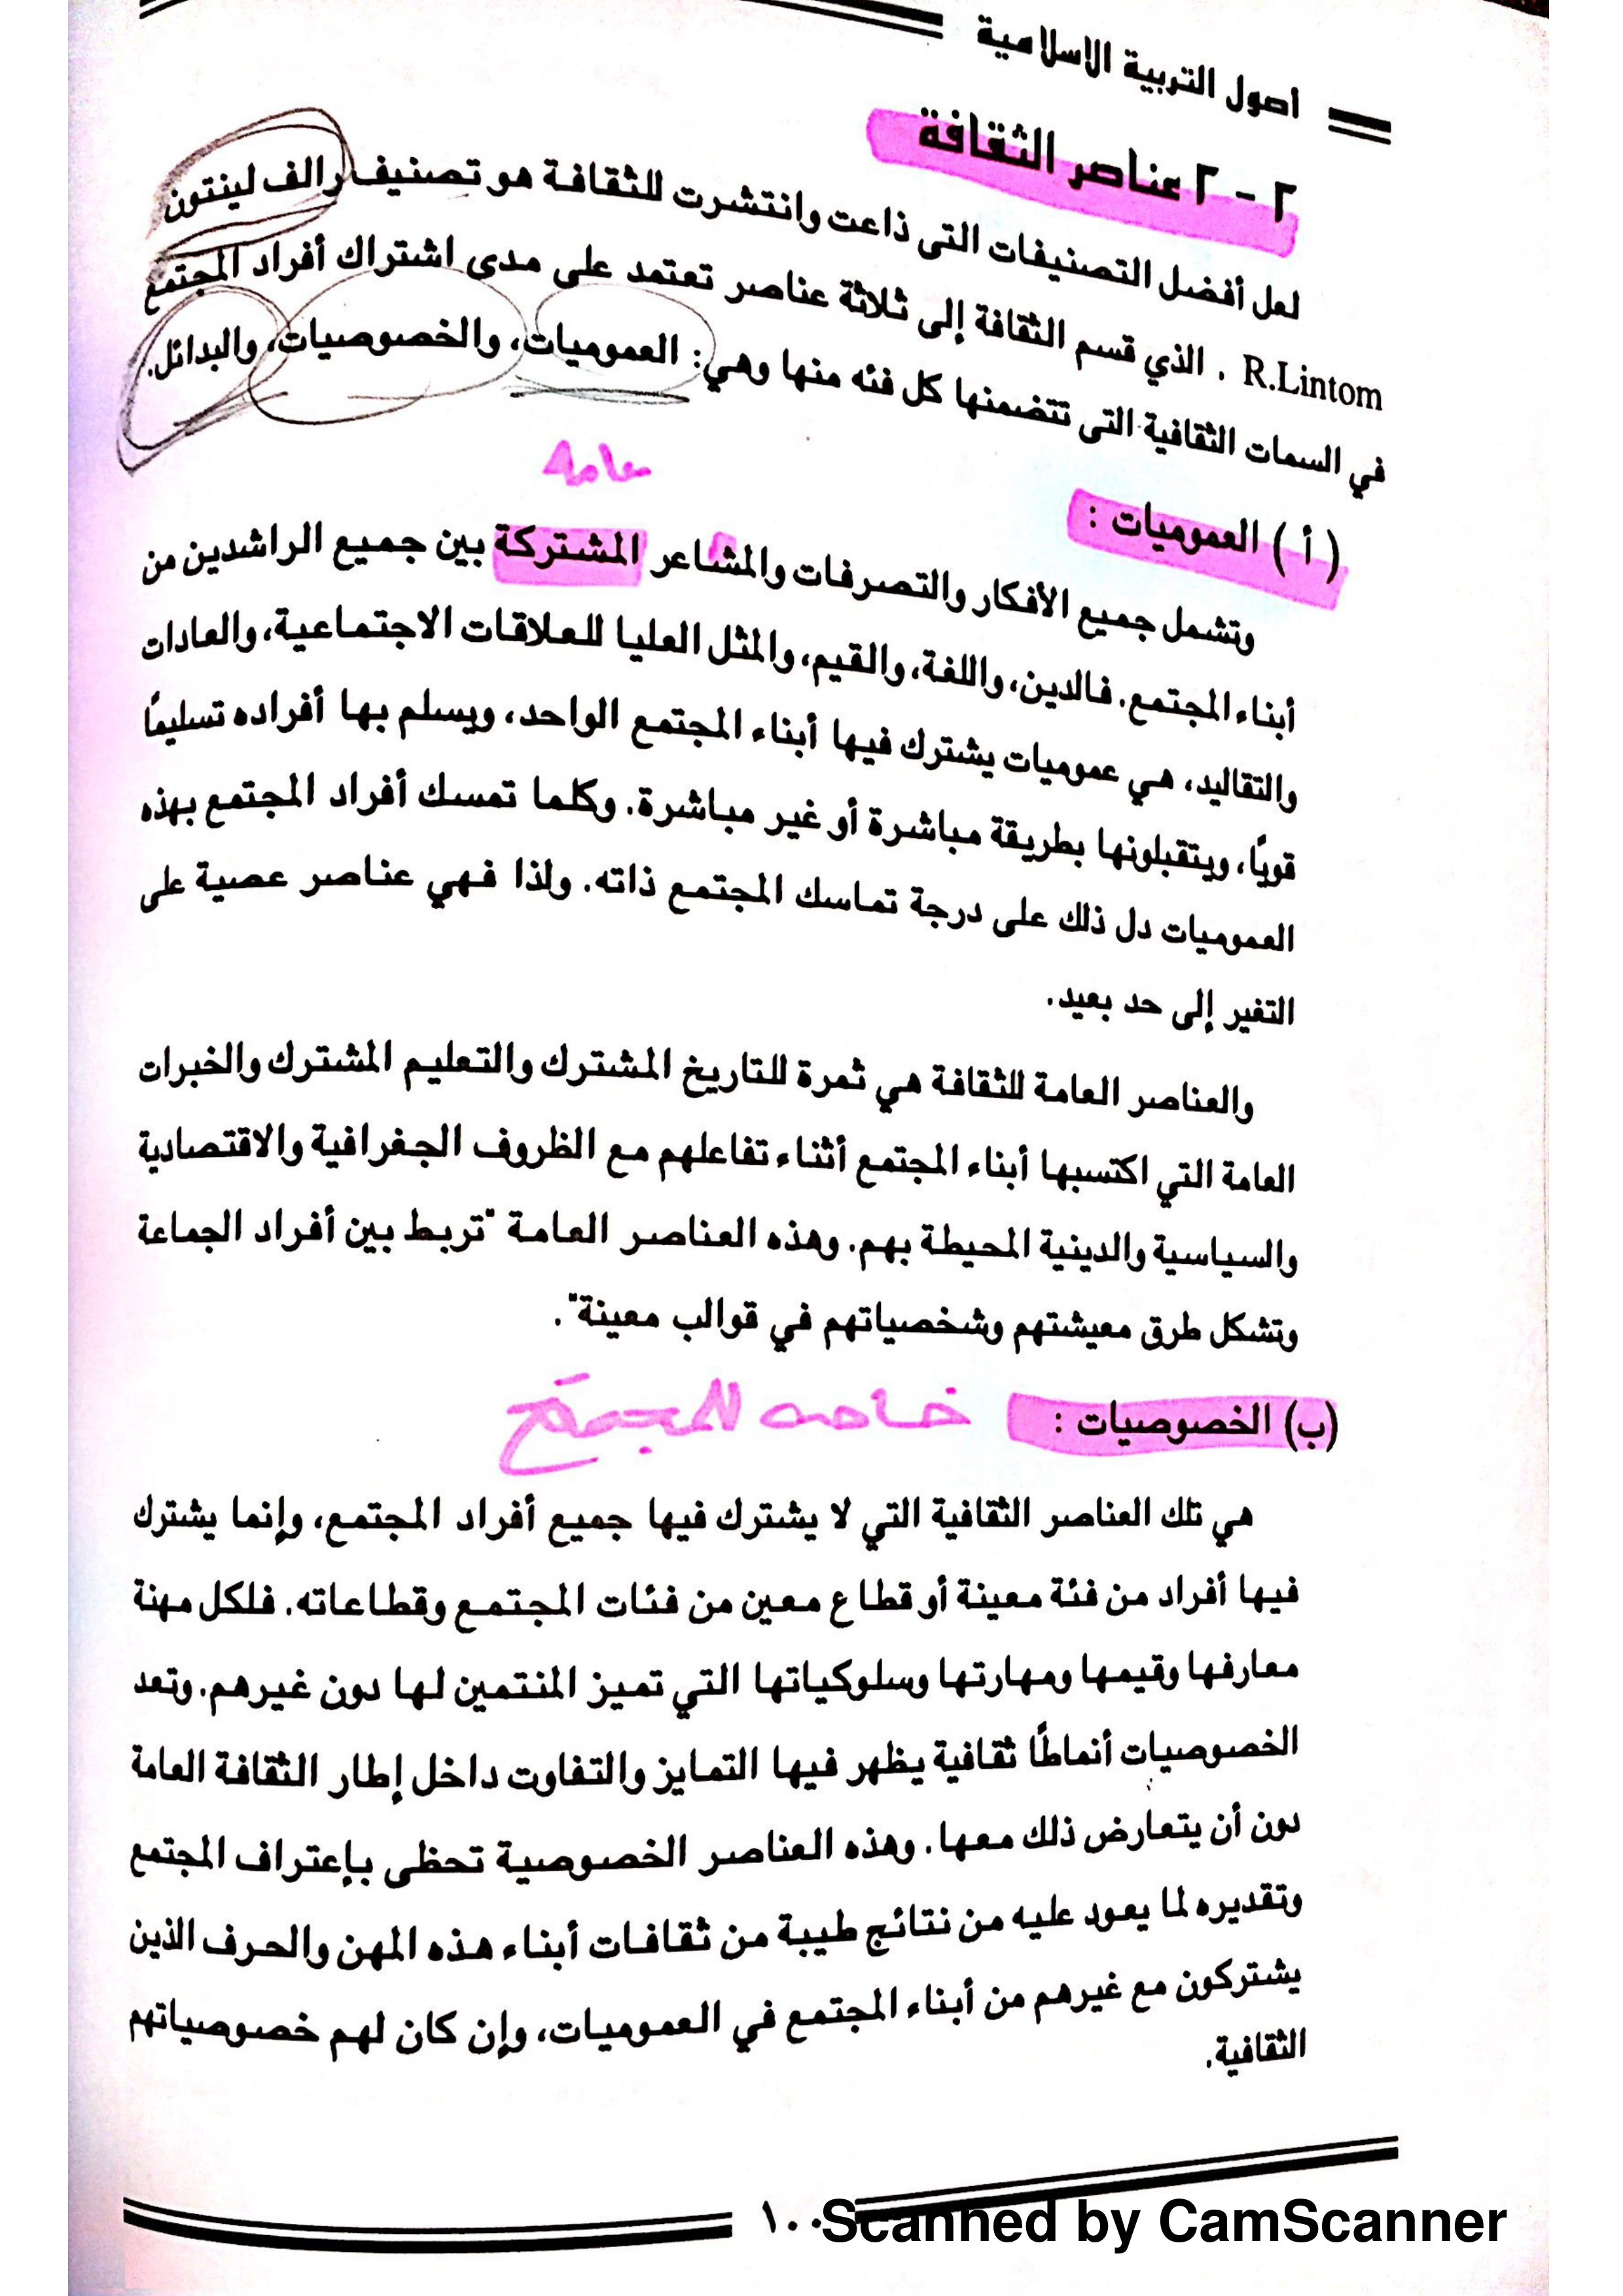 أصول التربية الاسلامية
٢ - ٢ عناصر الثقافة
لعل أفضل التصنيفات التى ذاعت وانتشرت للثقافة هو تصنيف رالف لينتون
R.Lintom . الذي قسم الثقافة إلى ثلاثة عناصر تعتمد على مدى اشتراك أفراد المجتمع
في السمات الثقافية التى تتضمنها كل فئه منها وهي: العموميات، والخصوصيات، والبدائل.
عامه
( أ ) العموميات :
وتشمل جميع الأفكار والتصرفات والمشاعر المشتركة بين جميع الراشدين من
أبناء المجتمع. فالدين، واللغة، والقيم، والمثل العليا للعلاقات الاجتماعية، والعادات
والتقاليد، هي عموميات يشترك فيها أبناء المجتمع الواحد، ويسلم بها أفراده تسليمًا
قويًا، ويتقبلونها بطريقة مباشرة أو غير مباشرة. وكلما تمسك أفراد المجتمع بهذه
العموميات دل ذلك على درجة تماسك المجتمع ذاته. ولذا فهي عناصر عصية على
التغير إلى حد بعيد.
والعناصر العامة للثقافة هي ثمرة للتاريخ المشترك والتعليم المشترك والخبرات
العامة التي اكتسبها أبناء المجتمع أثناء تفاعلهم مع الظروف الجغرافية والاقتصادية
والسياسية والدينية المحيطة بهم. وهذه العناصر العامة "تربط بين أفراد الجماعة
وتشكل طرق معيشتهم وشخصياتهم في قوالب معينة".
(ب) الخصوصيات : خاصه للمجتمع
هي تلك العناصر الثقافية التي لا يشترك فيها جميع أفراد المجتمع، وإنما يشترك
فيها أفراد من فئة معينة أو قطاع معين من فئات المجتمع وقطاعاته. فلكل مهنة
معارفها وقيمها ومهارتها وسلوكياتها التي تميز المنتمين لها دون غيرهم. وتعد
الخصوصيات أنماطًا ثقافية يظهر فيها التمايز والتفاوت داخل إطار الثقافة العامة
دون أن يتعارض ذلك معها. وهذه العناصر الخصوصية تحظى بإعتراف المجتمع
وتقديره لما يعود عليه من نتائج طيبة من ثقافات أبناء هذه المهن والحرف الذين
يشتركون مع غيرهم من أبناء المجتمع في العموميات، وإن كان لهم خصوصياتهم
الثقافية.
١٠٠
Scanned by CamScanner